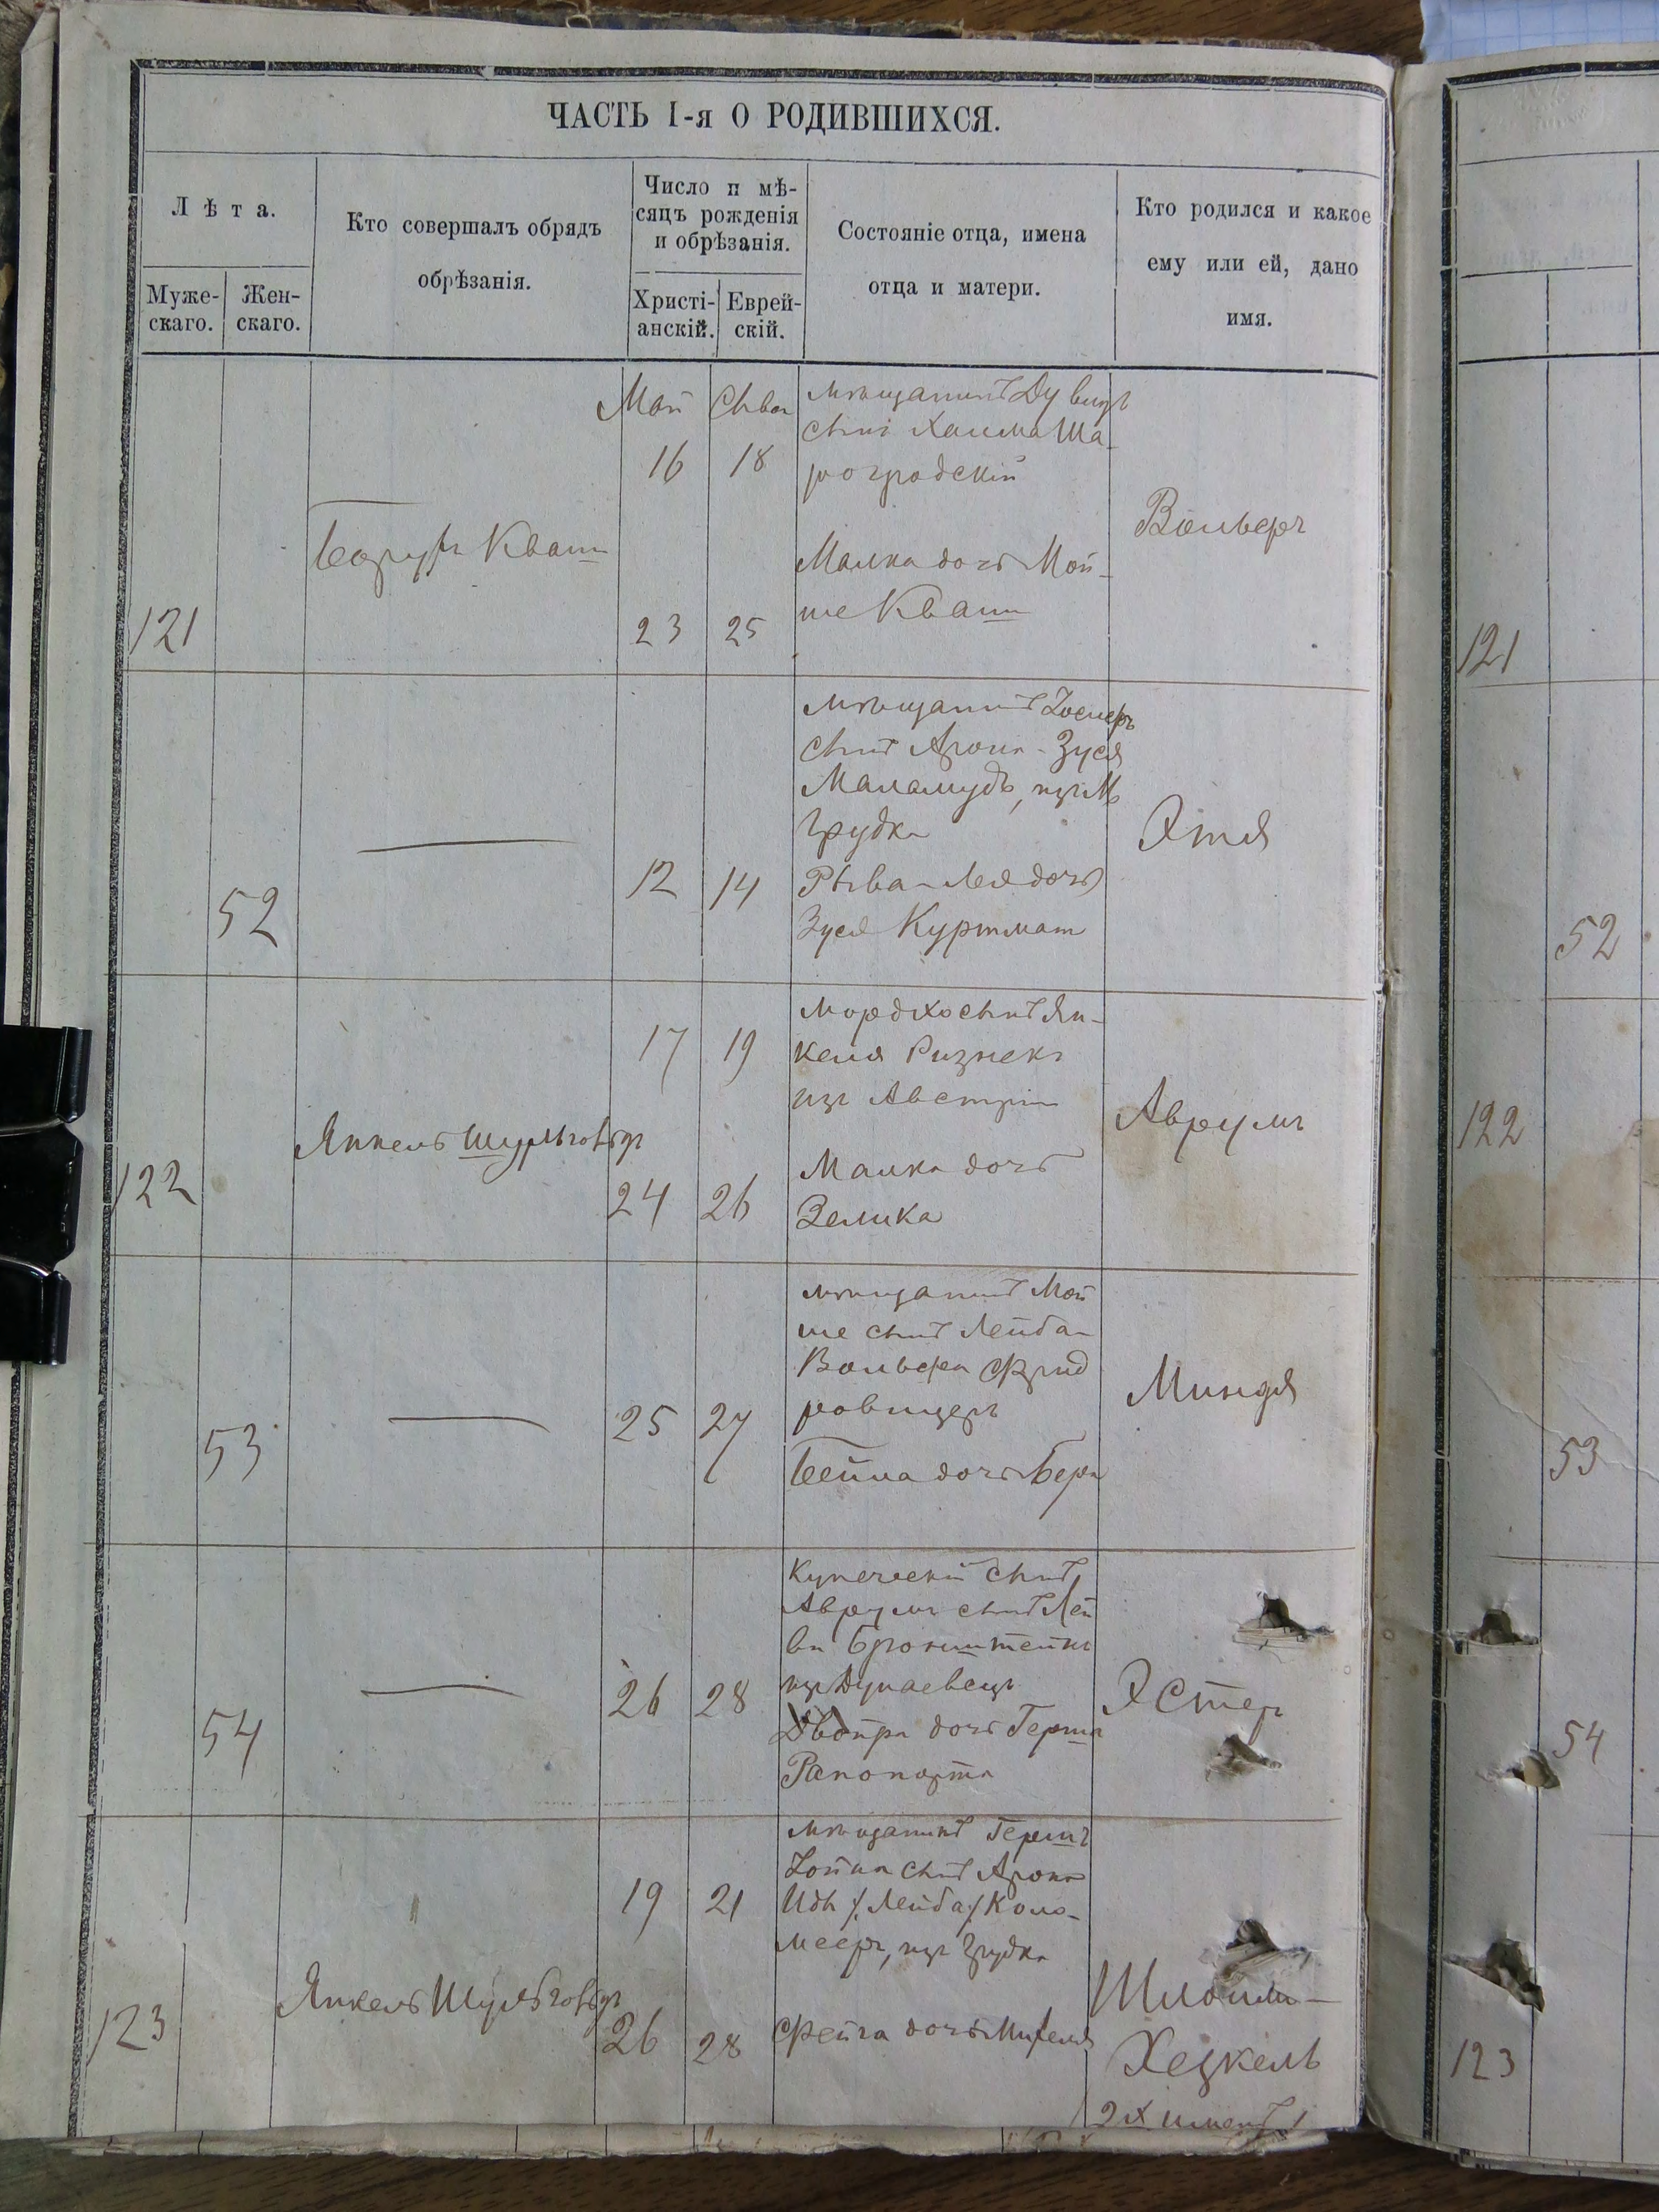 ЧАСТЬ I-я О РОДИВШИХСЯ.
Лѣта.
Муже-
скаго.
Жен-
скаго.
Кто совершалъ обрядъ
обрѣзанія.
Число и мѣ-
сяцъ рожденія
и обрѣзанія.
Христі-
анскій.
Еврей-
скій.
Состояніе отца, имена
отца и матери.
Кто родился и какое
ему или ей, дано
имя.
121
Борухъ Квати
Май
16
23
Сива
18
25
мѣщанинъ Дувидъ
сынъ Хаима Ша-
роградскій
Малка дочь Мой-
ше Квати
Вольфъ
52
12
14
мѣщанинъ Іосифъ
сынъ Арона-Зуся
Маламудъ, изъ М.
Грудка
Рыва-Лея дочь
Зуся Куртман
Этля
122
Янкель
17
24
19
26
Мордхо сынъ Ян-
келя Ризнекъ
изъ Австріи
Малка дочь
Зелика
Аврумъ
53
25
27
мѣщанинъ Мой
ше сынъ Лейба-
Вольфа Фрид
ровицеръ
Бейла дочь Бера
Миндя
54
26
28
Купеческій сынъ
Аврумъ сынъ Лей
ви Бронштейнъ
изъ Дунаевецъ
Двойра дочь Герша
Рапопорта
Эстер
123
Янкель
19
26
21
28
мѣщанинъ Гершъ
Іойна сынъ Арона
Иды /:Лейба:/ Коло-
мееръ, изъ Грудка
Фейга дочь Михеля
Шлойм-
Хезкель
2х именъ
121
52
122
53
54
123